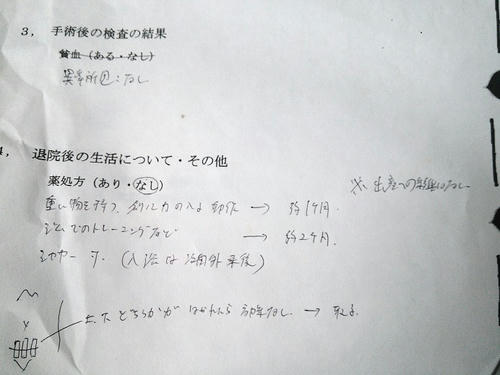 3, 手術後の検査の結果
貧血（ある・なし）
異常所見：なし
4, 退院後の生活について・その他
薬処方（あり・なし）
※ 出産への影響はなし
重い物を持つ、 力の入る動作 → 約1ヶ月.
ジムでのトレーニングなど → 約2ヶ月.
シャワー 可. (入浴は 外来後)
左、下 どちらかが はがれたら 問題なし. → 取る.